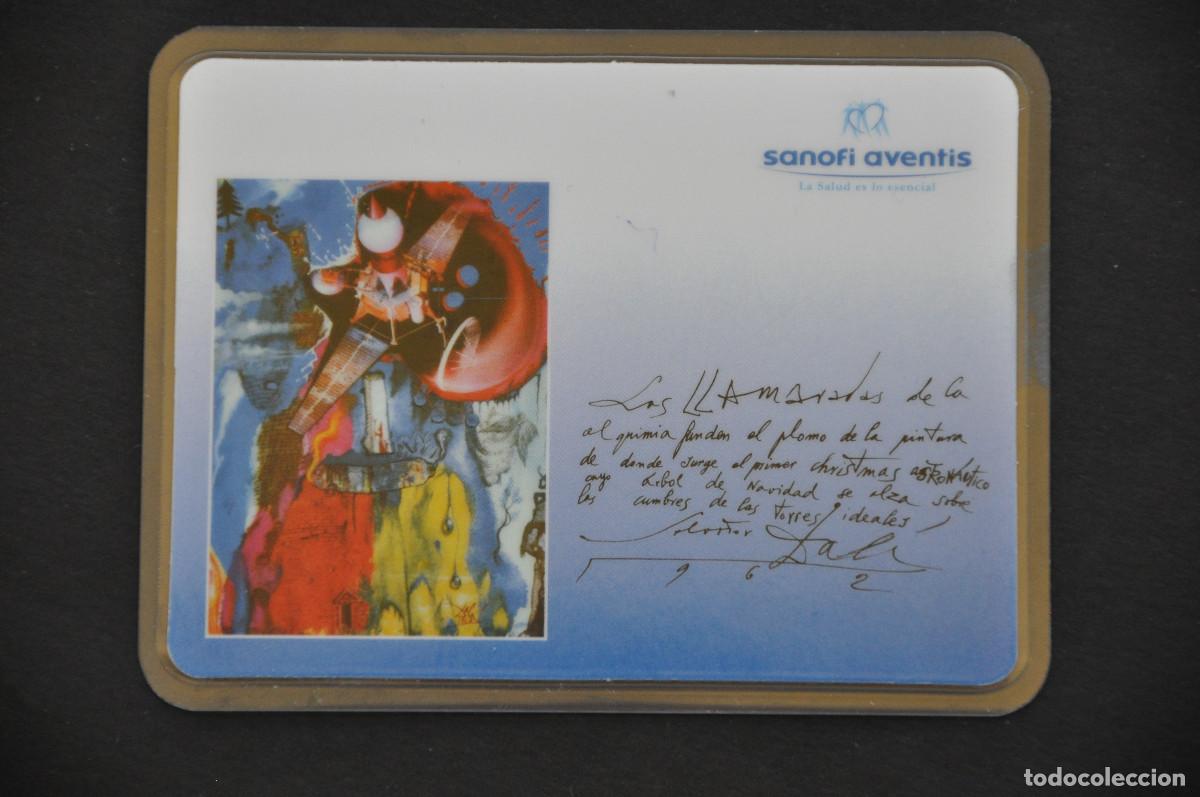 sanofi aventis
La Salud es lo esencial
Las LLAMaradas de la
al quimia funden el plomo de la pintura
de donde surge el primer christmas astronautico
cuyo Arbol de Navidad se alza sobre
las cumbres de las torres ideales
Salvador Dalí
1962
todocoleccion